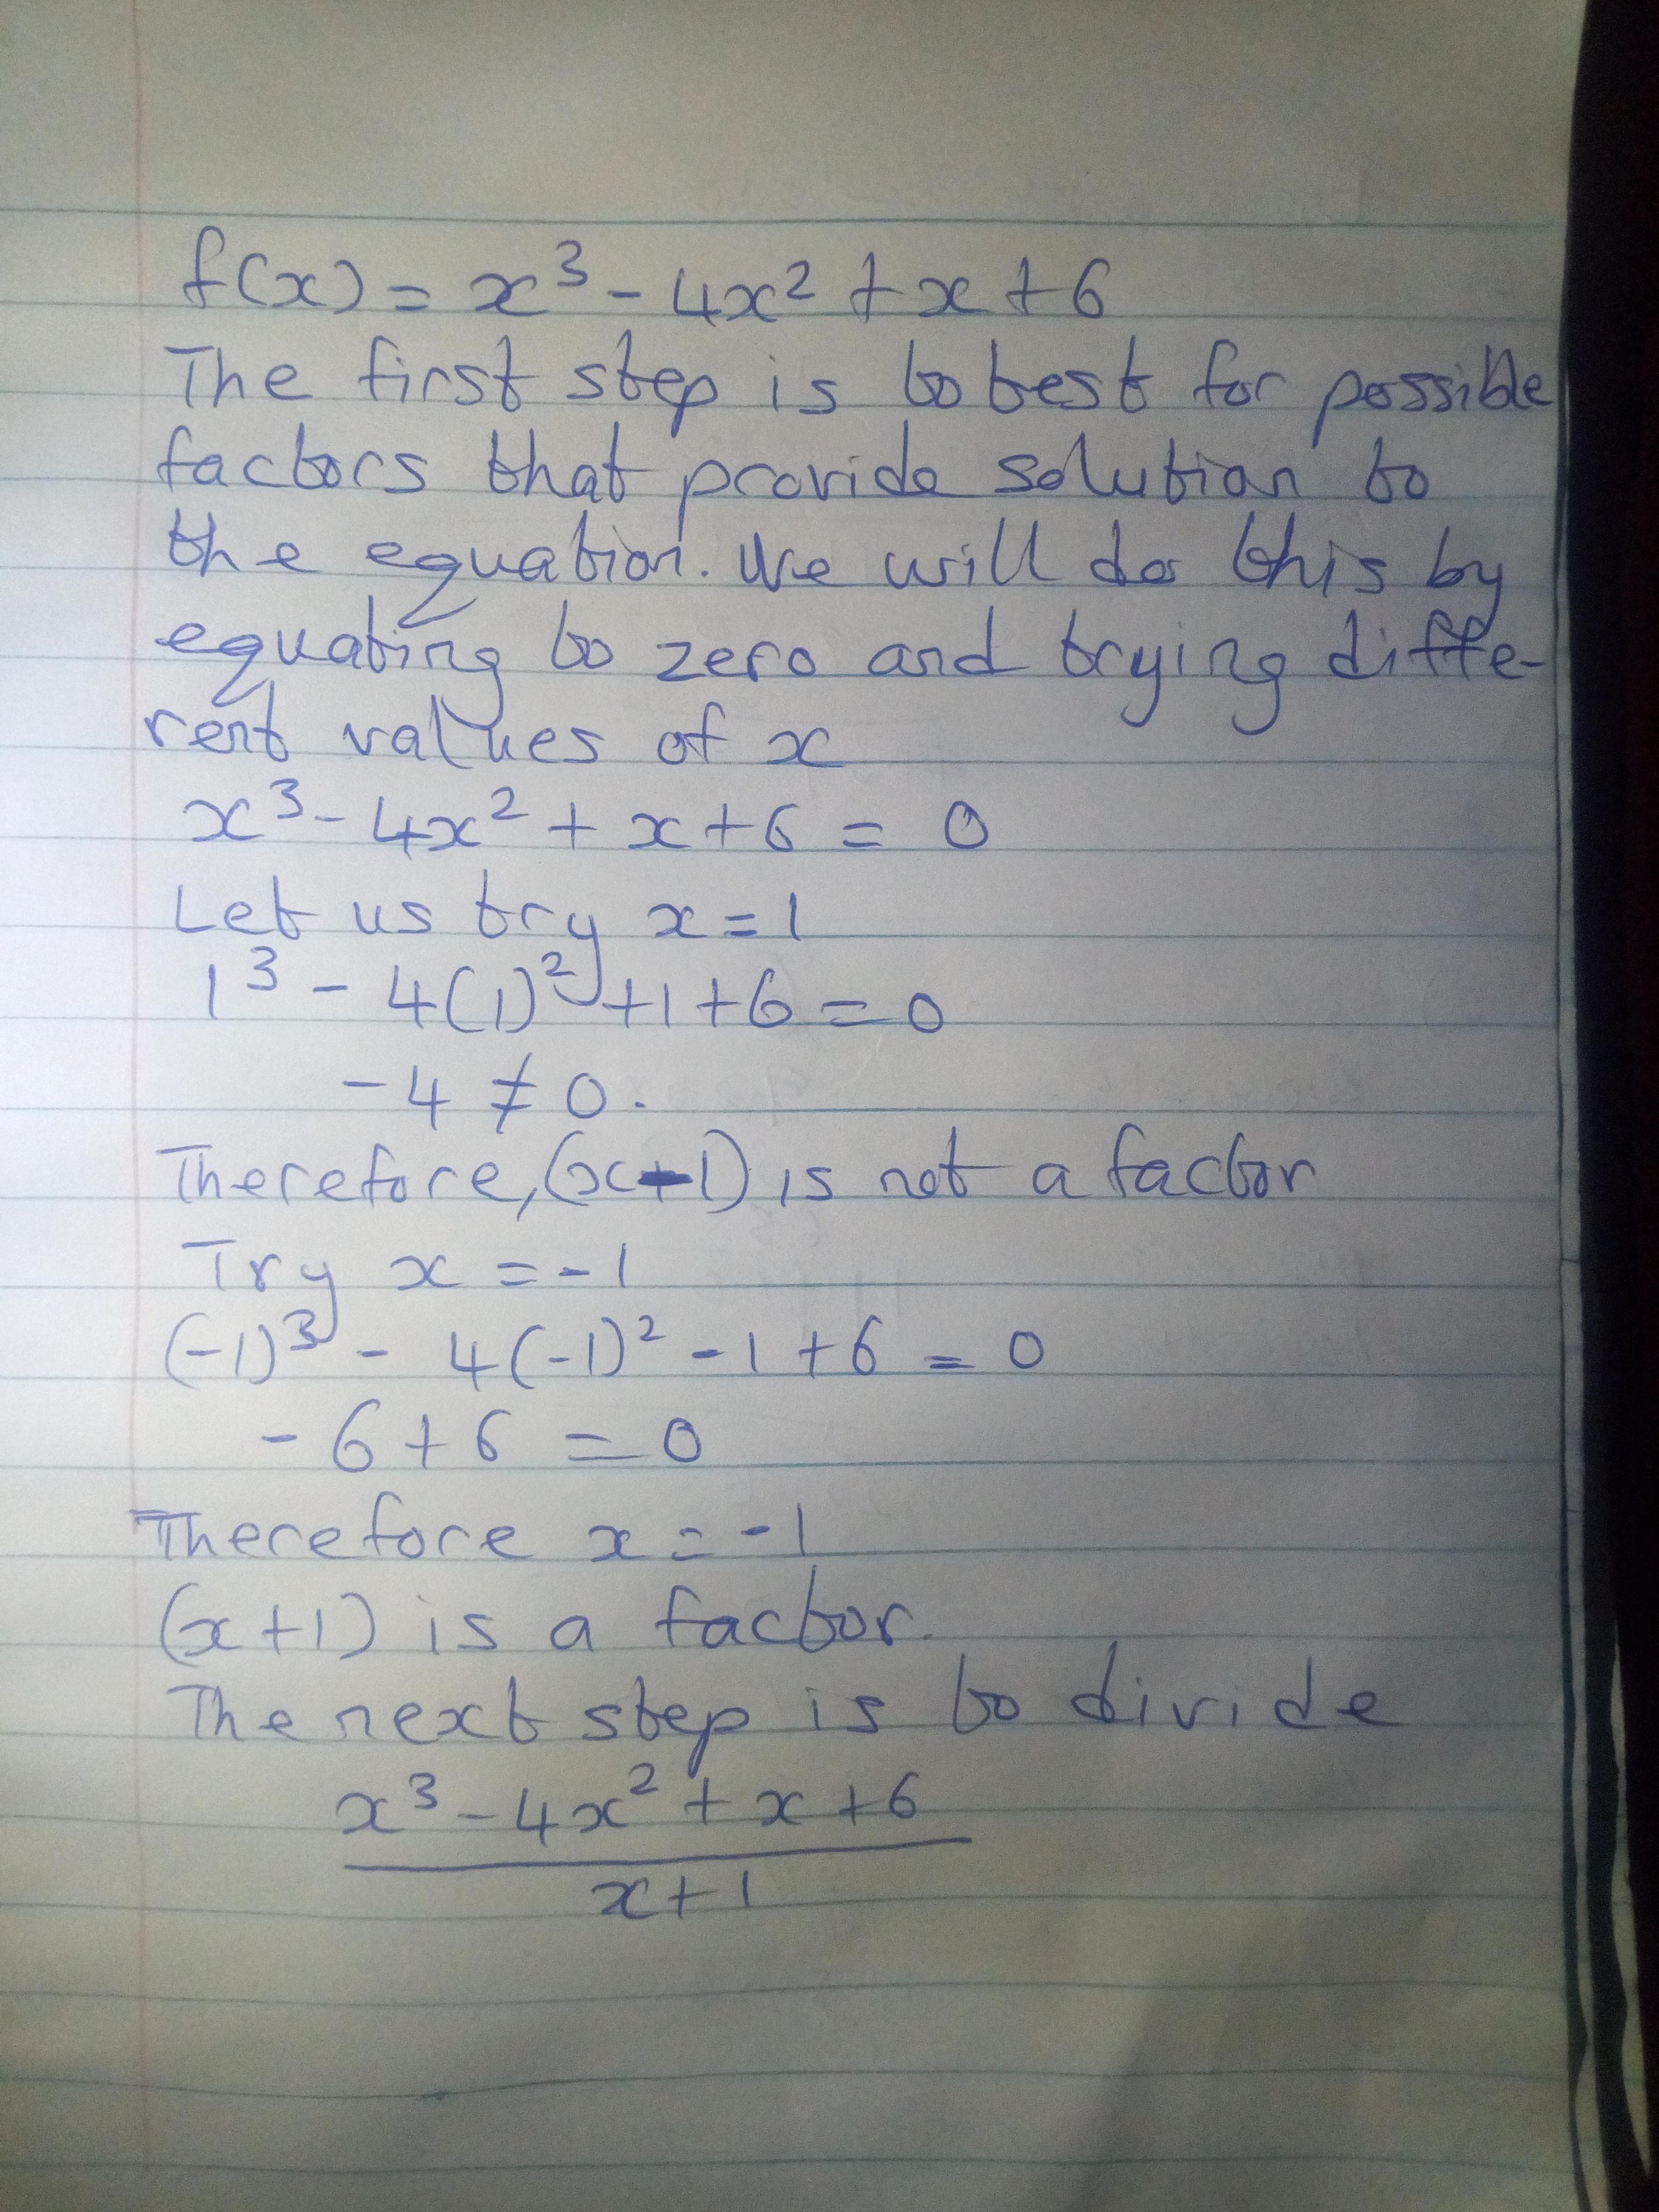 f(x) = x³ - 4x² + x + 6
The first step is to test for possible
factors that provide solution to
the equation. We will do this by
equating to zero and trying diffe-
rent values of x
x³ - 4x² + x + 6 = 0
Let us try x = 1
1³ - 4(1)² + 1 + 6 = 0
-4 ≠ 0.
Therefore, (x-1) is not a factor
Try x = -1
(-1)³ - 4(-1)² - 1 + 6 = 0
-6 + 6 = 0
Therefore x = -1
(x+1) is a factor.
The next step is to divide
x³ - 4x² + x + 6
x + 1